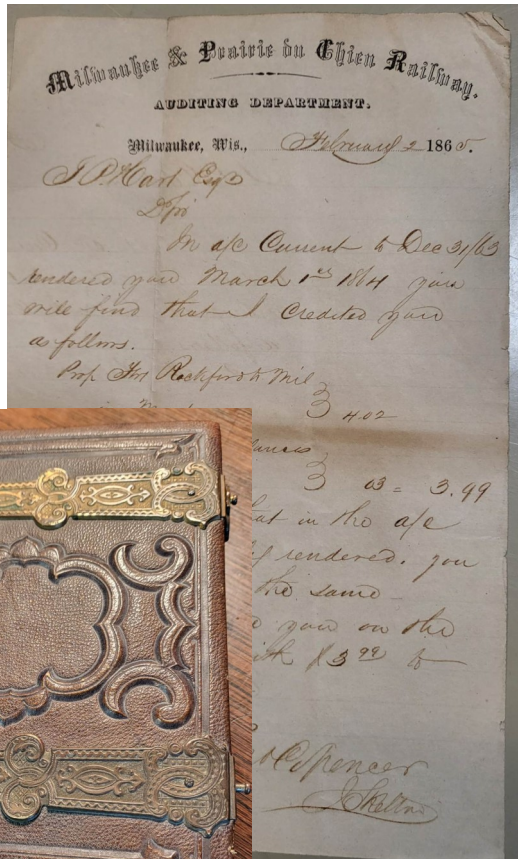 Milwaukee & Prairie du Chien Railway.
AUDITING DEPARTMENT.
Milwaukee, Wis., February 2 1865.
J P Hart Esq
D Sir
In a/c Current to Dec 31/63
rendered you March 1st 1864 you
will find that I Credited you
as follows.
Prop Frt Rockford to Mil
4.02
03 = 3.99
in the a/c
rendered. you
the same
you on the
$3 99 to
Spencer